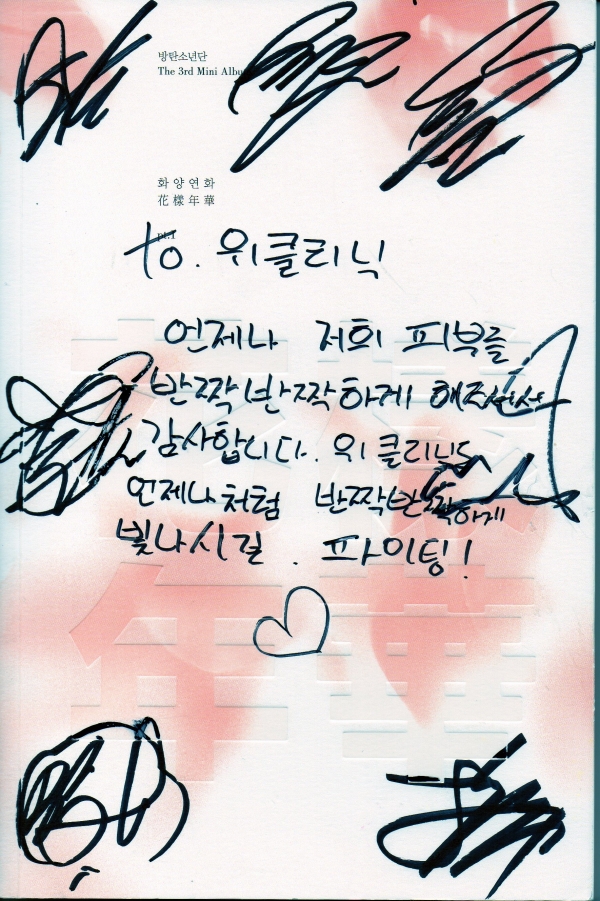 방탄소년단
The 3rd Mini Album
화양연화
花樣年華
pt.1
to. 위클리닉
언제나 저희 피부를
반짝반짝하게 해주셔서
감사합니다. 위클리닉도
언제나처럼 반짝반짝하게
빛나시길. 파이팅!